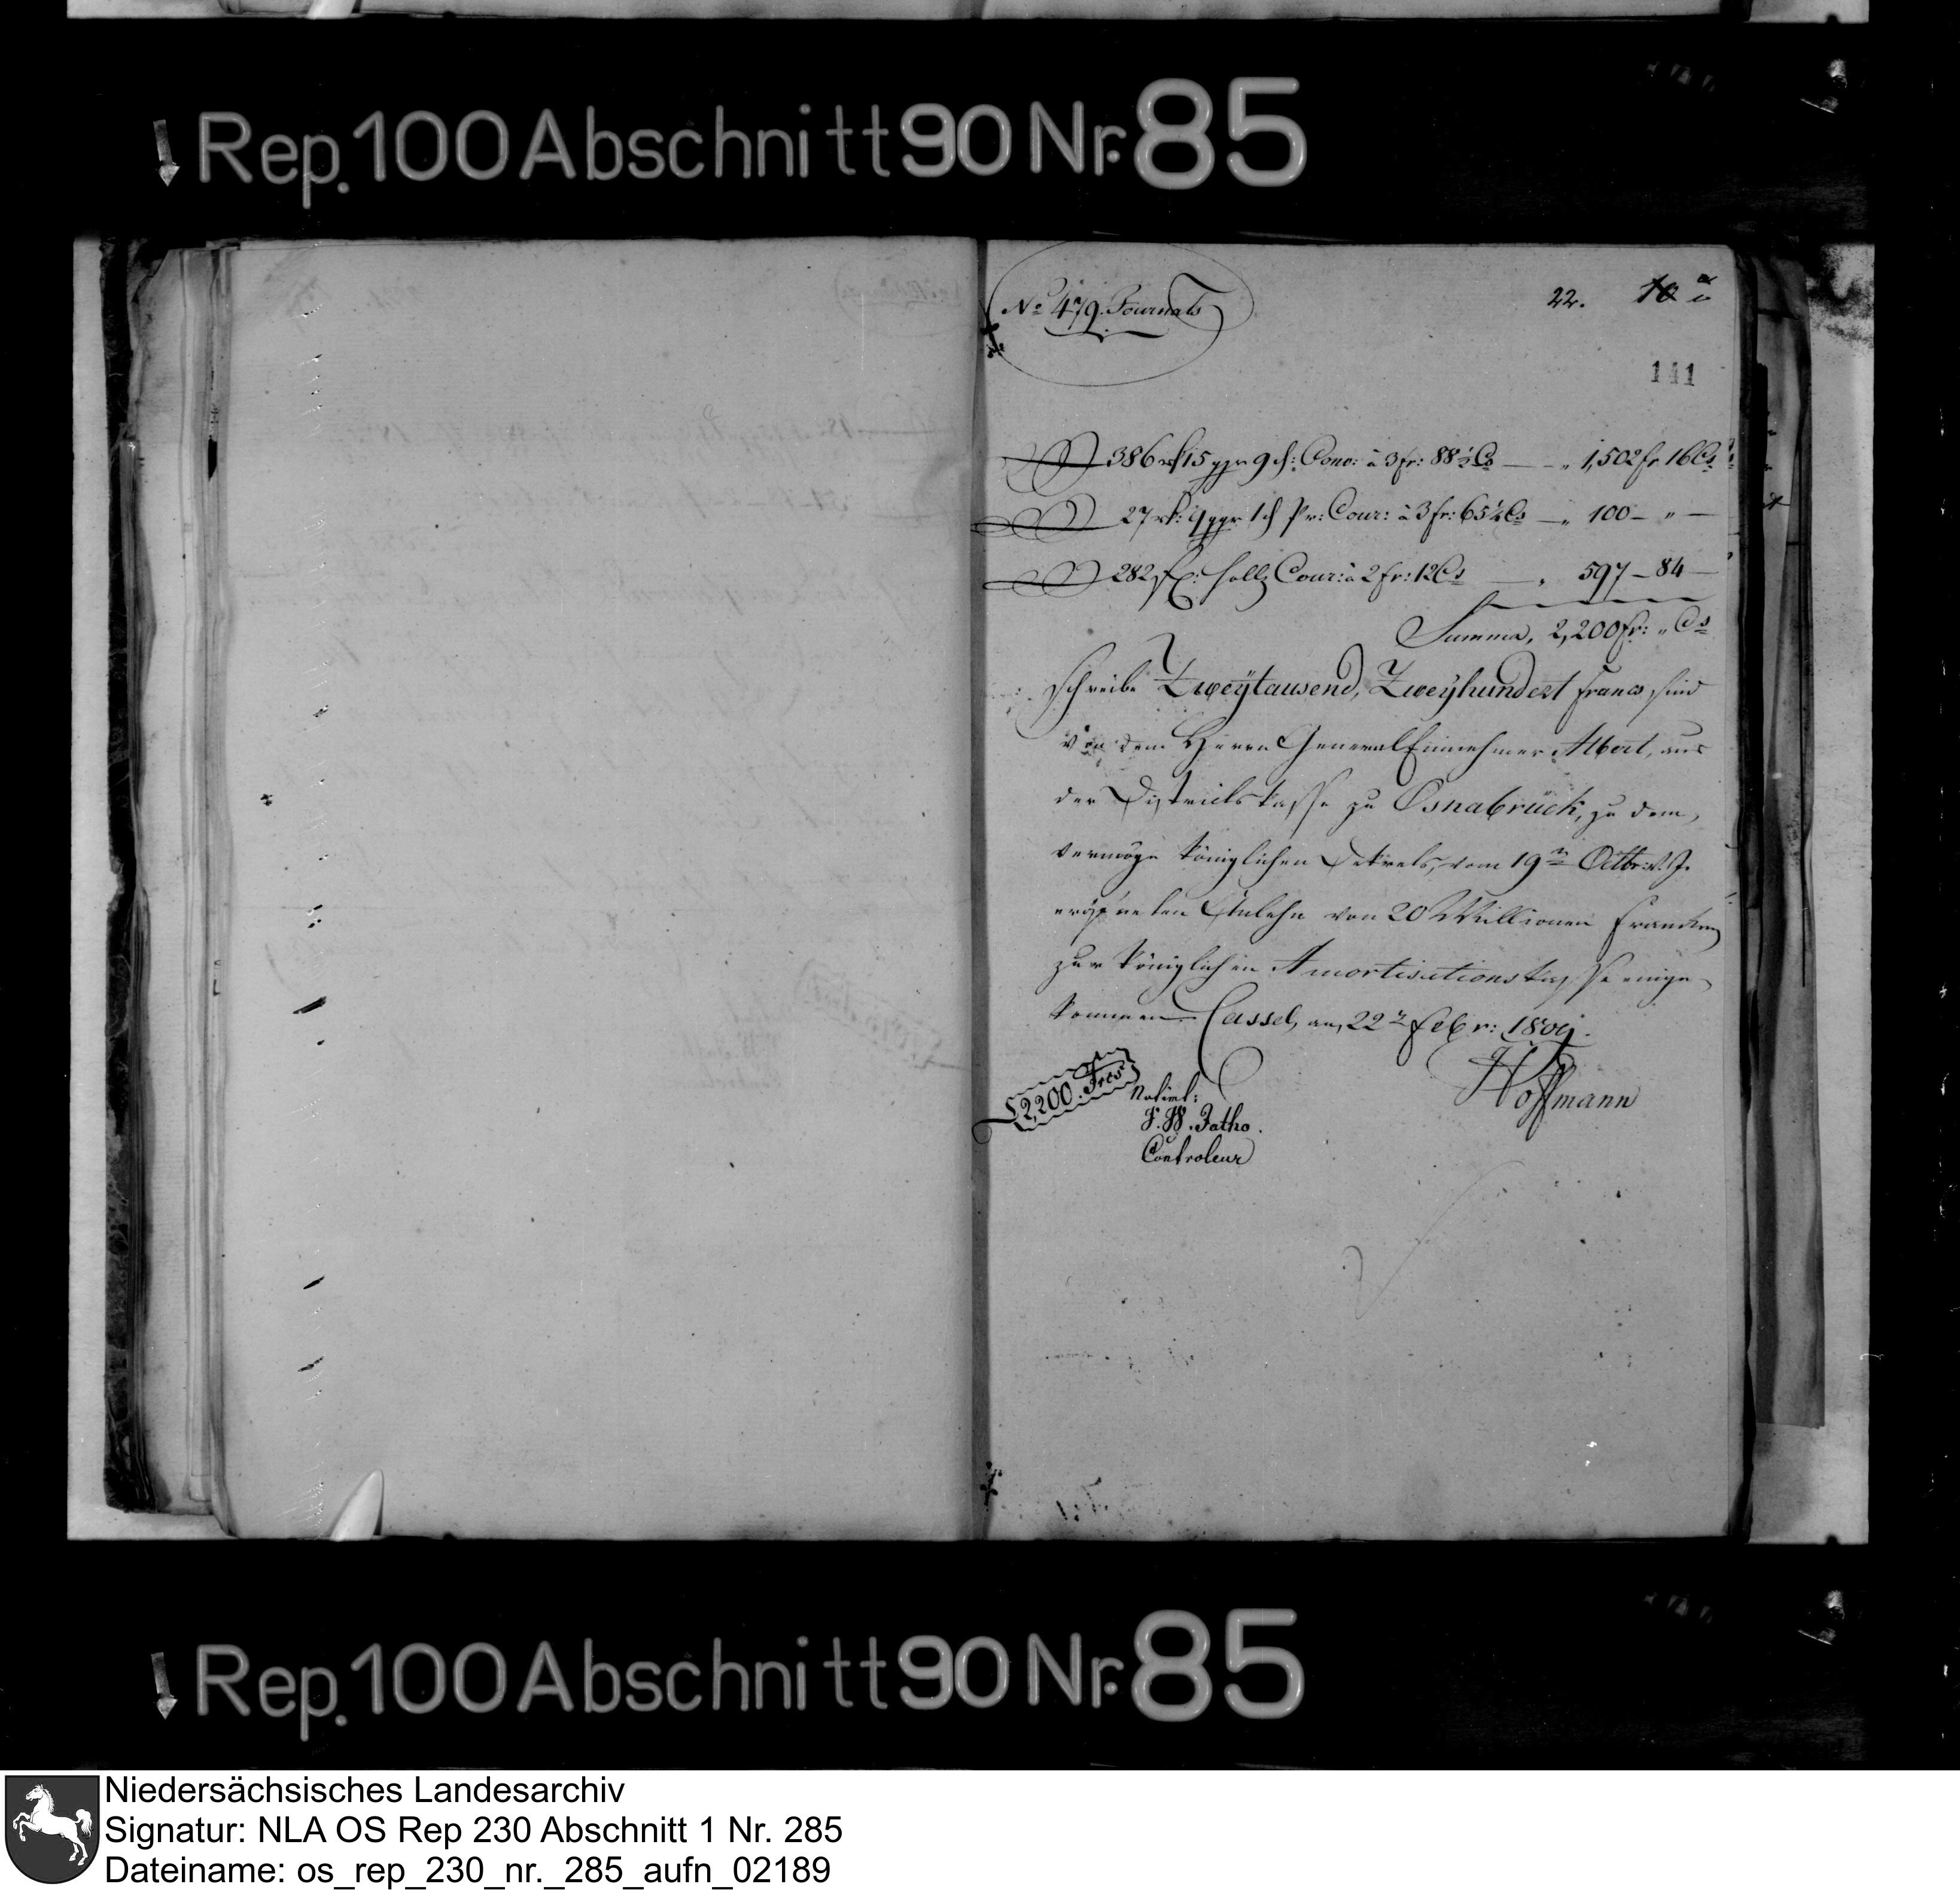 Rep. 100 Abschnitt 90 Nr. 85
No 479. Journals
22. 10
141
386 rt 15 ggr 9 d: Conv: à 3 fr: 88 1/2 Cs — „ 1,502 fr 16 Cs
27 rt: 9 ggr 1 d Pr: Cour: à 3 fr: 65 1/4 Cs — „ 100 — „ —
282 fl: holl: Cour: à 2 fr: 12 Cs — „ 597 — 84 —
Summa, 2,200 fr: „ Cs
schreibe Zweytausend, Zweyhundert Francs, sind
von dem Herrn General Einnehmer Albert, aus
der Districtskasse zu Osnabrück, zu dem,
vermöge Königlichen Dekrets, vom 19n Octbr: v. J.
eröfneten Anlehn von 20 Millionen Franken
zur Königlichen Amortisationskasse einge-
kommen. Cassel, am 22n Febr: 1809.
2,200. Frcs
Hoffmann
Notirt:
F. W. Jatho.
Controleur
Rep. 100 Abschnitt 90 Nr. 85
Niedersächsisches Landesarchiv
Signatur: NLA OS Rep 230 Abschnitt 1 Nr. 285
Dateiname: os_rep_230_nr._285_aufn_02189